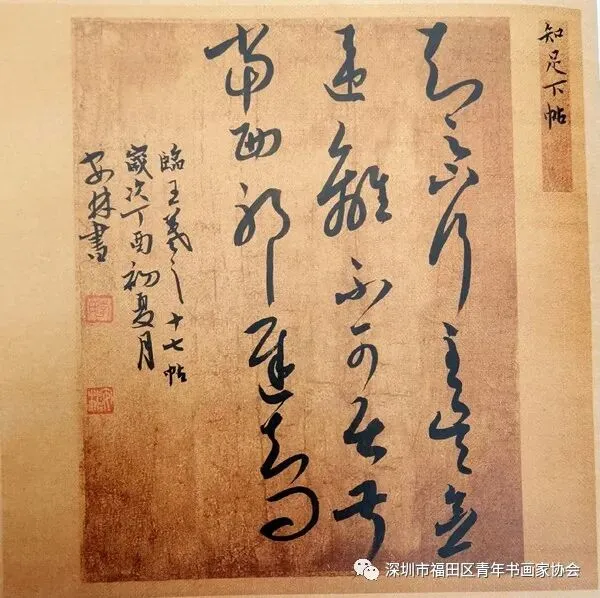 知足下帖
知足下行至吳念
違離不可居叔
當西耶遲知問
臨王羲之十七帖
歲次丁酉初夏月
安林書
深圳市福田区青年书画家协会